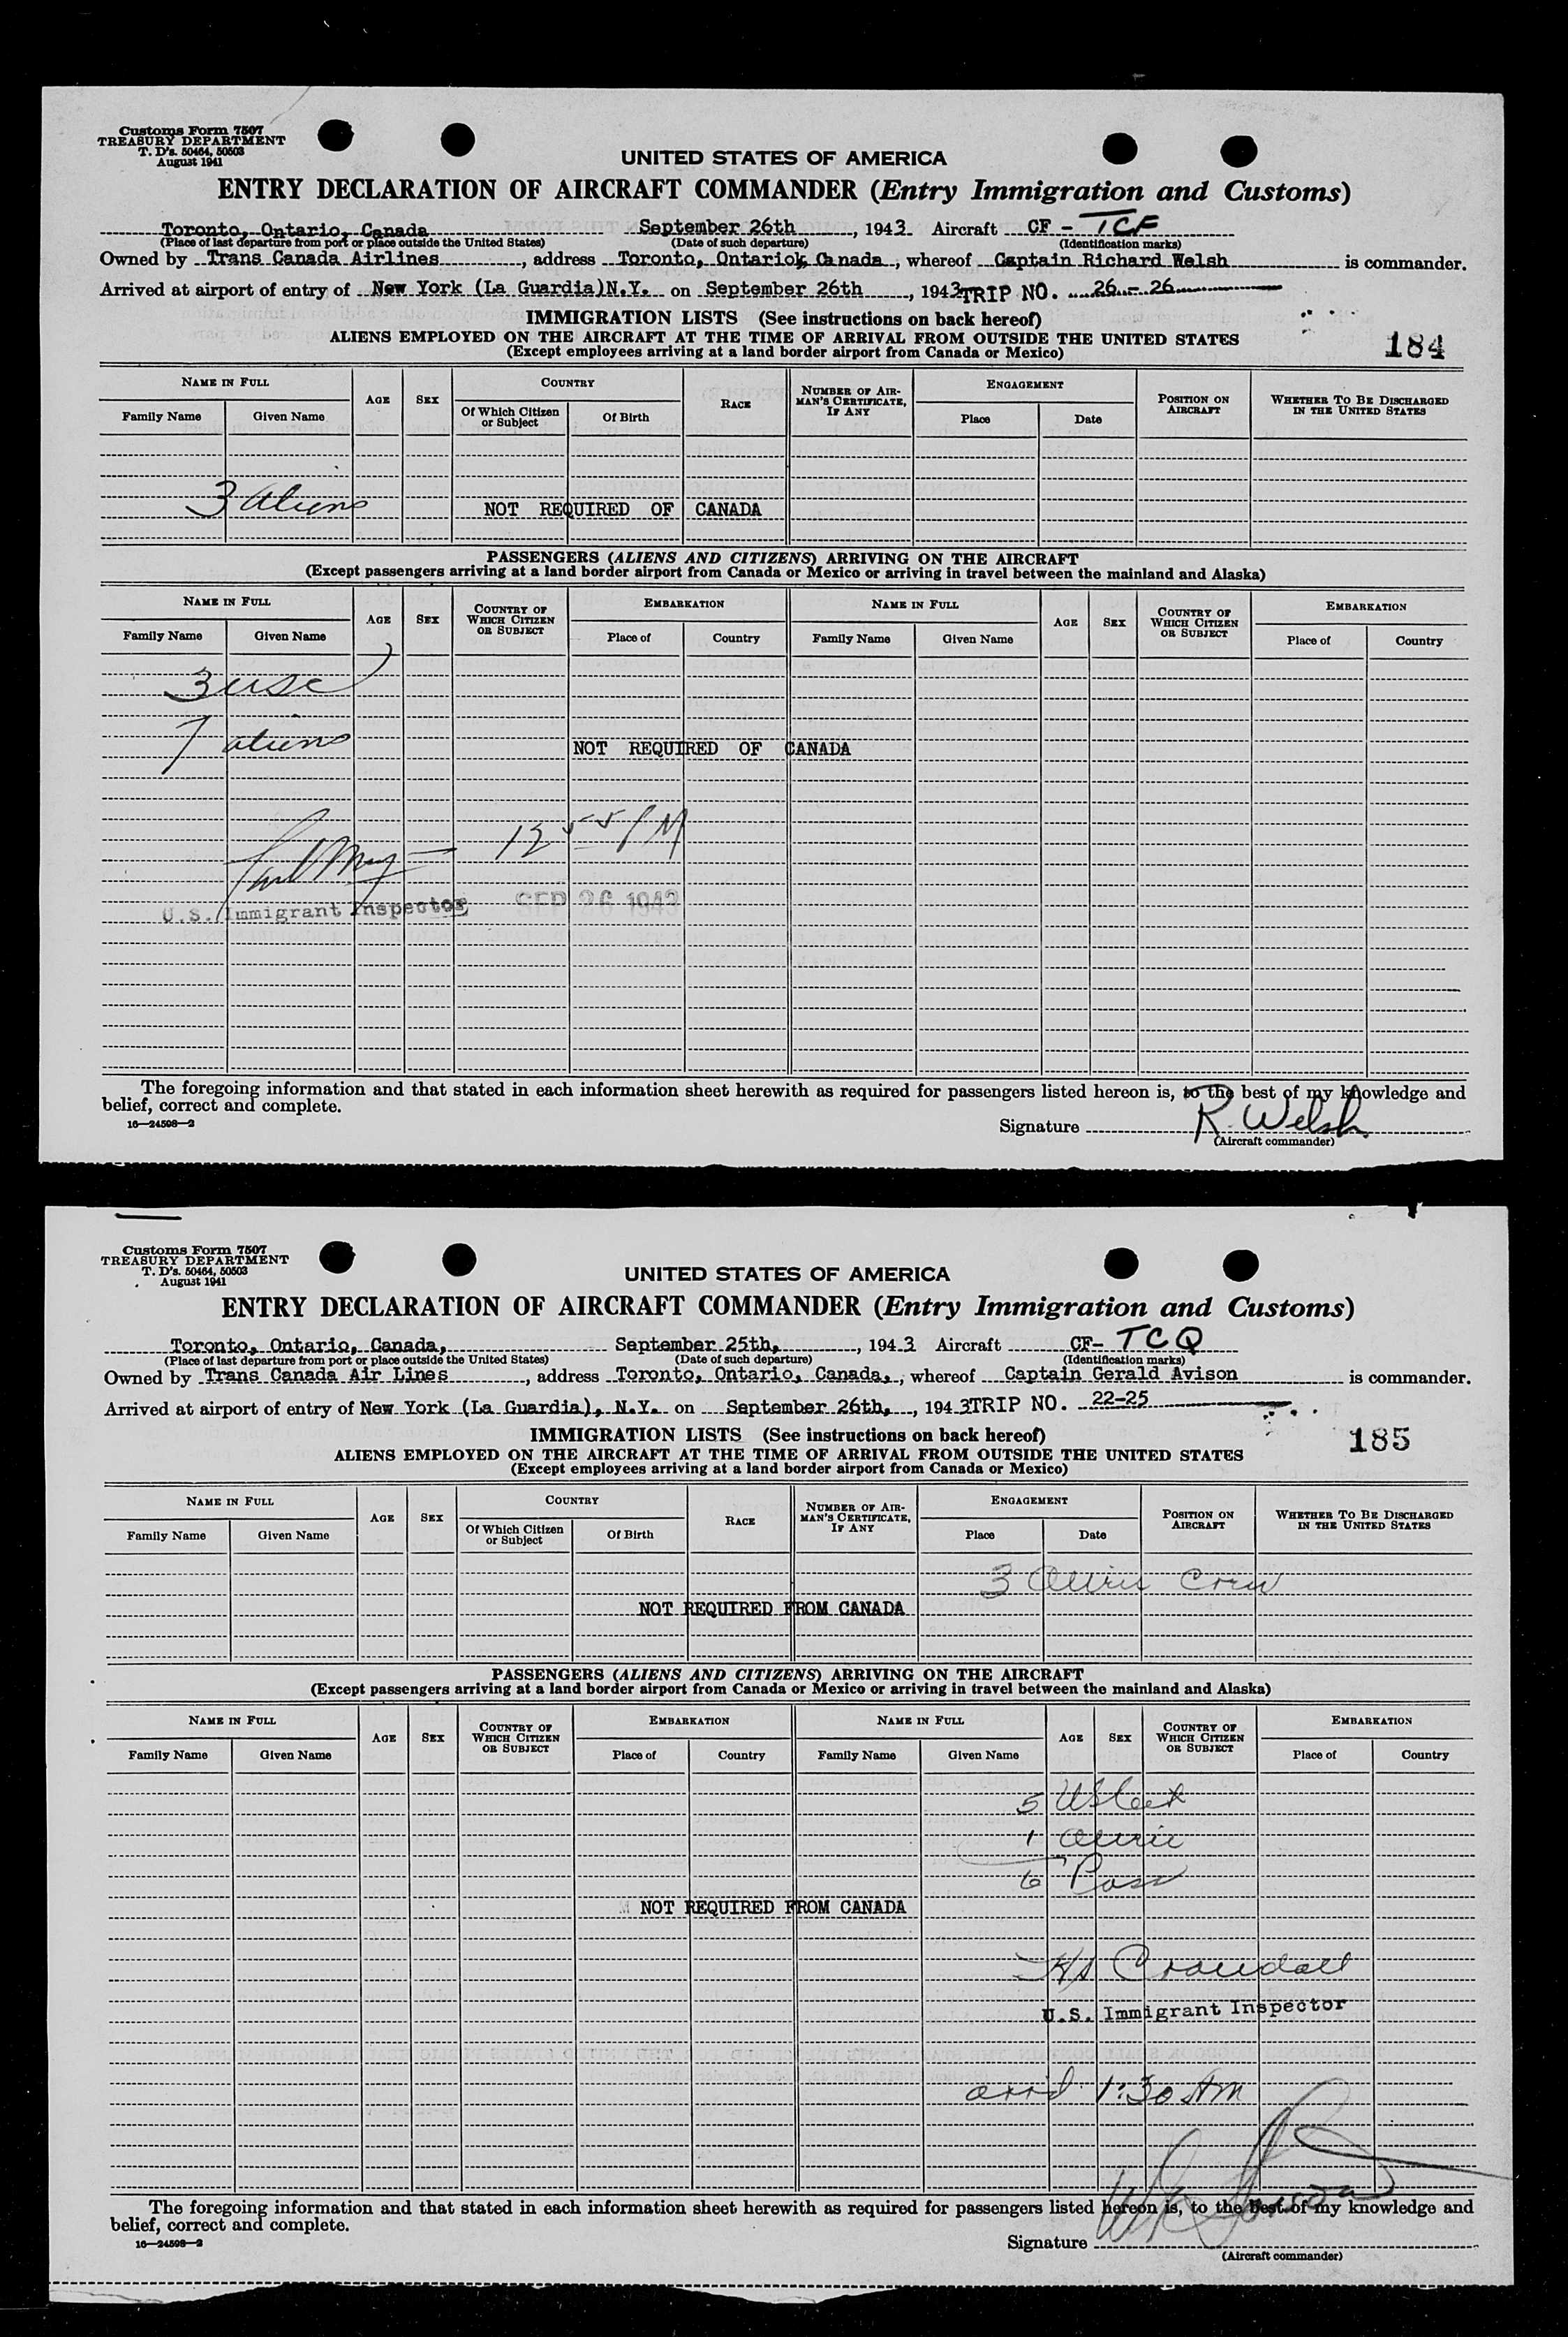 Customs Form 7507
TREASURY DEPARTMENT
T. D's. 50464, 50503
August 1941
UNITED STATES OF AMERICA
ENTRY DECLARATION OF AIRCRAFT COMMANDER (Entry Immigration and Customs)
Toronto, Ontario, Canada September 26th, 1943 Aircraft CF - TCF
(Place of last departure from port or place outside the United States) (Date of such departure) (Identification marks)
Owned by Trans Canada Airlines, address Toronto, Ontario, Canada, whereof Captain Richard Welsh is commander.
Arrived at airport of entry of New York (La Guardia)N.Y. on September 26th, 1943 TRIP NO. 26 - 26
IMMIGRATION LISTS (See instructions on back hereof)
ALIENS EMPLOYED ON THE AIRCRAFT AT THE TIME OF ARRIVAL FROM OUTSIDE THE UNITED STATES
(Except employees arriving at a land border airport from Canada or Mexico)
184
NAME IN FULL AGE SEX COUNTRY RACE NUMBER OF AIRMAN'S CERTIFICATE, IF ANY ENGAGEMENT POSITION ON AIRCRAFT WHETHER TO BE DISCHARGED IN THE UNITED STATES
Family Name Given Name Of Which Citizen or Subject Of Birth Place Date
3 aliens NOT REQUIRED OF CANADA
PASSENGERS (ALIENS AND CITIZENS) ARRIVING ON THE AIRCRAFT
(Except passengers arriving at a land border airport from Canada or Mexico or arriving in travel between the mainland and Alaska)
NAME IN FULL AGE SEX COUNTRY OF WHICH CITIZEN OR SUBJECT EMBARKATION NAME IN FULL AGE SEX COUNTRY OF WHICH CITIZEN OR SUBJECT EMBARKATION
Family Name Given Name Place of Country Family Name Given Name Place of Country
3 usc
7 aliens NOT REQUIRED OF CANADA
12 55 PM
U.S. Immigrant Inspector SEP 26 1943
The foregoing information and that stated in each information sheet herewith as required for passengers listed hereon is, to the best of my knowledge and
belief, correct and complete.
16—24598—2
Signature R. Welsh
(Aircraft commander)
Customs Form 7507
TREASURY DEPARTMENT
T. D's. 50464, 50503
August 1941
UNITED STATES OF AMERICA
ENTRY DECLARATION OF AIRCRAFT COMMANDER (Entry Immigration and Customs)
Toronto, Ontario, Canada, September 25th, 1943 Aircraft CF- TCQ
(Place of last departure from port or place outside the United States) (Date of such departure) (Identification marks)
Owned by Trans Canada Air Lines, address Toronto, Ontario, Canada, whereof Captain Gerald Avison is commander.
Arrived at airport of entry of New York (La Guardia), N.Y. on September 26th, 1943 TRIP NO. 22-25
IMMIGRATION LISTS (See instructions on back hereof)
ALIENS EMPLOYED ON THE AIRCRAFT AT THE TIME OF ARRIVAL FROM OUTSIDE THE UNITED STATES
(Except employees arriving at a land border airport from Canada or Mexico)
185
NAME IN FULL AGE SEX COUNTRY RACE NUMBER OF AIRMAN'S CERTIFICATE, IF ANY ENGAGEMENT POSITION ON AIRCRAFT WHETHER TO BE DISCHARGED IN THE UNITED STATES
Family Name Given Name Of Which Citizen or Subject Of Birth Place Date
3 Alien Crew
NOT REQUIRED FROM CANADA
PASSENGERS (ALIENS AND CITIZENS) ARRIVING ON THE AIRCRAFT
(Except passengers arriving at a land border airport from Canada or Mexico or arriving in travel between the mainland and Alaska)
NAME IN FULL AGE SEX COUNTRY OF WHICH CITIZEN OR SUBJECT EMBARKATION NAME IN FULL AGE SEX COUNTRY OF WHICH CITIZEN OR SUBJECT EMBARKATION
Family Name Given Name Place of Country Family Name Given Name Place of Country
5 US Cit
1 Alien
6 Pass
NOT REQUIRED FROM CANADA
Crandall
U.S. Immigrant Inspector
arrd. 1:30 AM
The foregoing information and that stated in each information sheet herewith as required for passengers listed hereon is, to the best of my knowledge and
belief, correct and complete.
16—24598—2
Signature
(Aircraft commander)